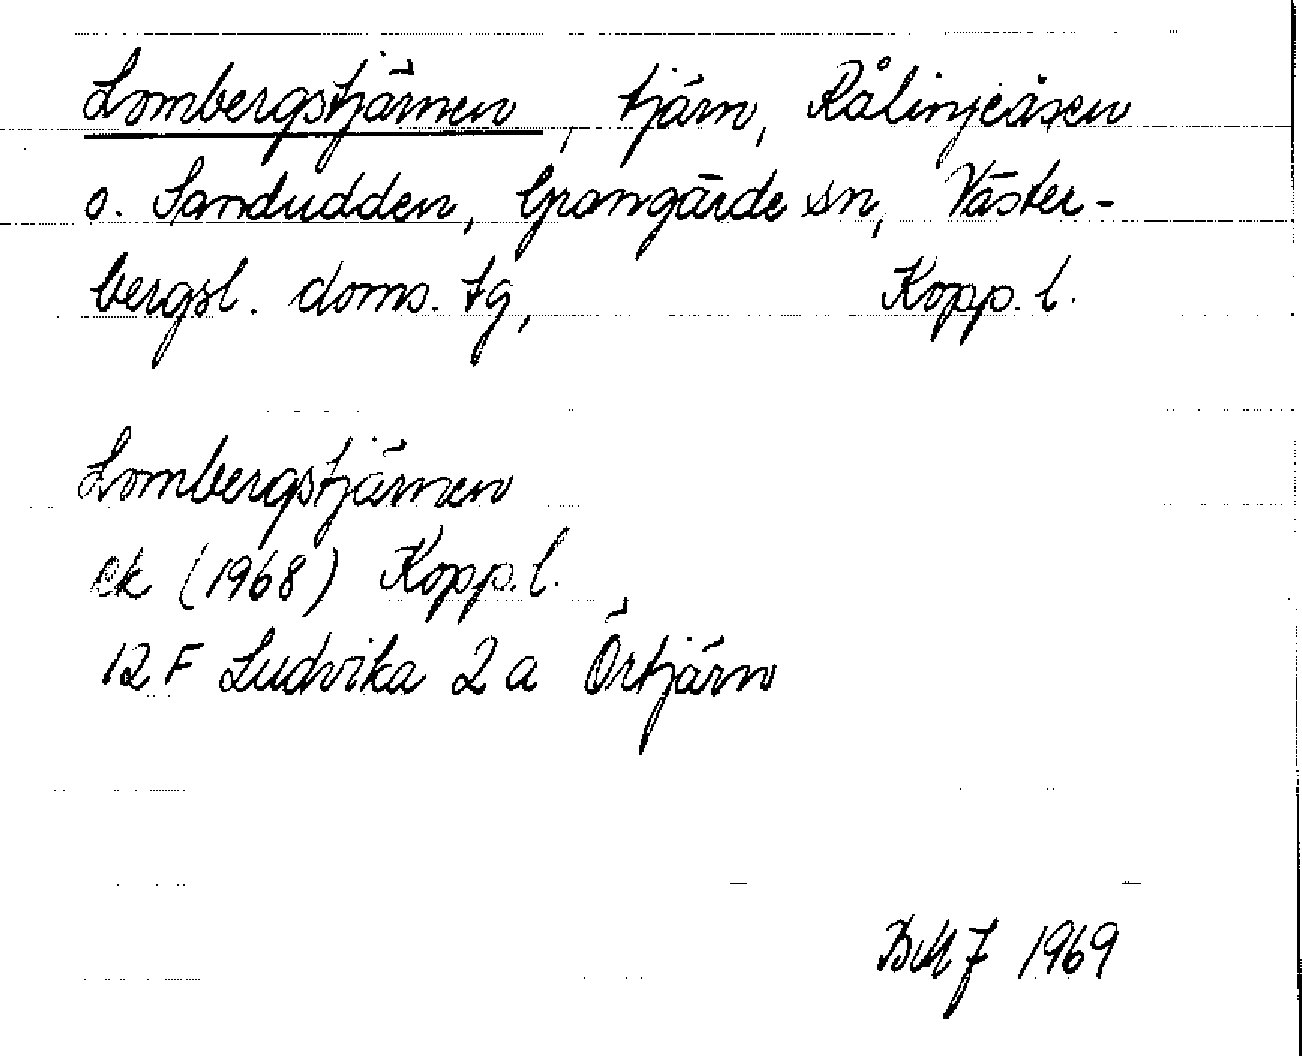 Lombergstjärnen, tjärn, Rålinjeåsen
o. Sandudden, Grangärde sn, Väster-
bergsl. doms. tg, Kopp. l.
Lombergstjärnen
ek (1968) Kopp. l.
12 F Ludvika 2 a Örtjärn
BMJ 1969